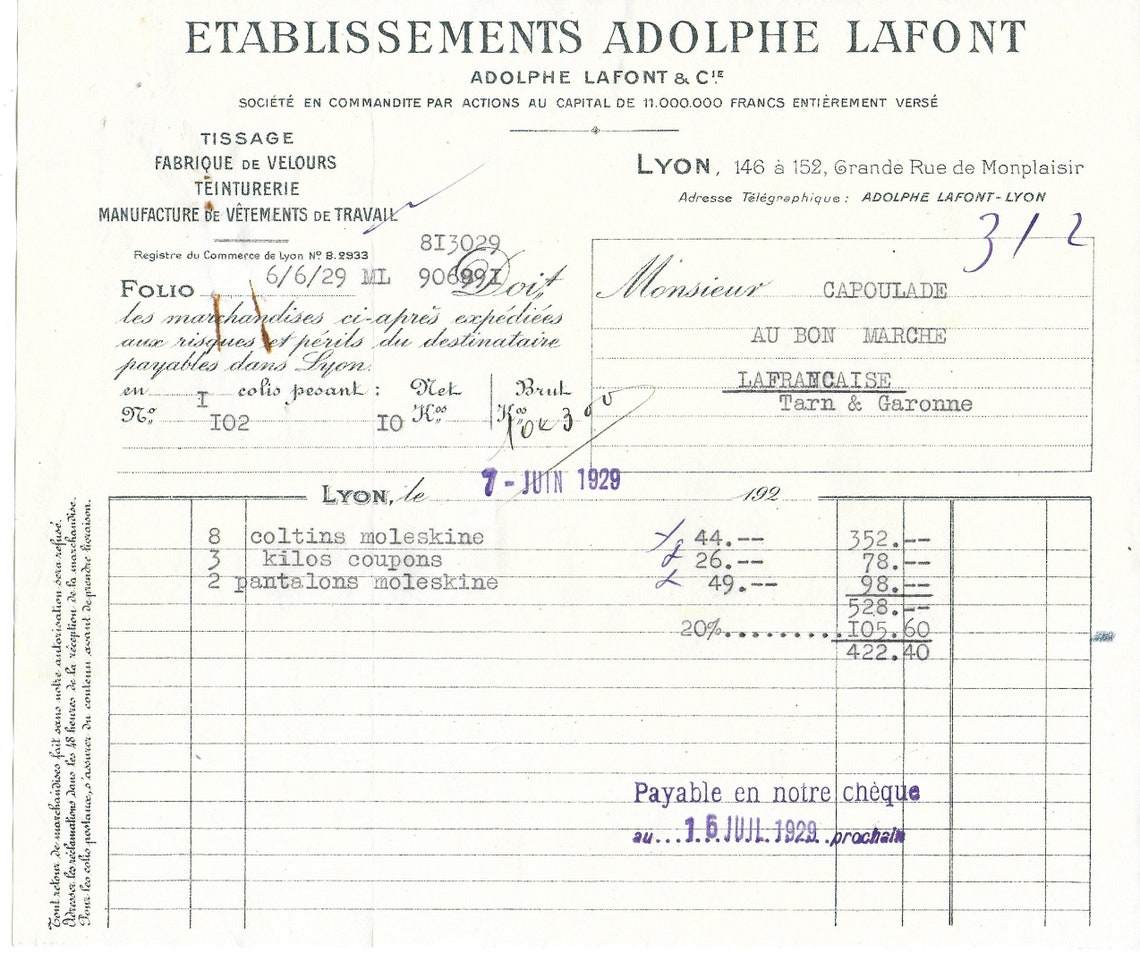 ETABLISSEMENTS ADOLPHE LAFONT
ADOLPHE LAFONT & CIE
SOCIÉTÉ EN COMMANDITE PAR ACTIONS AU CAPITAL DE 11.000.000 FRANCS ENTIÈREMENT VERSÉ
TISSAGE
FABRIQUE DE VELOURS
TEINTURERIE
MANUFACTURE DE VÊTEMENTS DE TRAVAIL
LYON, 146 à 152, Grande Rue de Monplaisir
Adresse Télégraphique : ADOLPHE LAFONT-LYON
312
Registre du Commerce de Lyon No B.2933
8I3029
FOLIO 6/6/29 ML
Doit
les marchandises ci-après expédiées
aux risques et périls du destinataire
payables dans Lyon.
en I colis pesant : Net Brut
No. I02 I0 Kos Kos
Monsieur CAPOULADE
AU BON MARCHE
LAFRANCAISE
Tarn & Garonne
LYON, le 7 - JUIN 1929 192
8 coltins moleskine 44.-- 352.--
3 kilos coupons 26.-- 78.--
2 pantalons moleskine 49.-- 98.--
528.--
20%.........I05.60
422.40
Payable en notre chèque
au...15 JUIL 1929..prochain
Tout retour de marchandises fait sans notre autorisation sera refusé.
Adresser les réclamations dans les 48 heures de la réception de la marchandise.
Pour les colis postaux, s'assurer du contenu avant de prendre livraison.